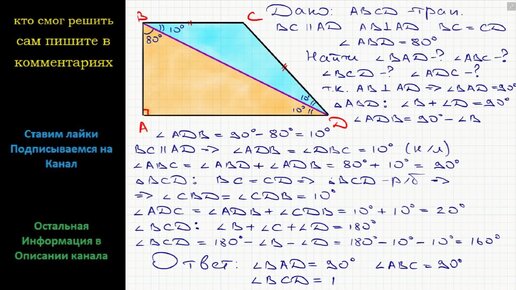 кто смог решить
сам пишите в
комментариях
Ставим лайки
Подписываемся на
Канал
Остальная
Информация в
Описании канала
B
C
80°
10°
10°
10°
A
D
Дано: ABCD трап.
BC ∥ AD AB⊥AD BC = CD
∠ABD = 80°
Найти ∠BAD-? ∠ABC-?
∠BCD-? ∠ADC-?
т.к. AB⊥AD => ∠BAD=90°
△ABD: ∠B + ∠D = 90°
∠ADB = 90° - ∠B
∠ADB = 90° - 80° = 10°
BC∥AD => ∠ADB = ∠DBC = 10° (н/л)
∠ABC = ∠ABD + ∠ADB = 80° + 10° = 90°
△BCD: BC = CD => △BCD - р/б =>
=> ∠CBD = ∠CDB = 10°
∠ADC = ∠ADB + ∠CDB = 10° + 10° = 20°
∠BCD: ∠B + ∠C + ∠D = 180°
∠BCD = 180° - ∠B - ∠D = 180° - 10° - 10° = 160°
Ответ: ∠BAD = 90° ∠ABC = 90°
∠BCD = 1